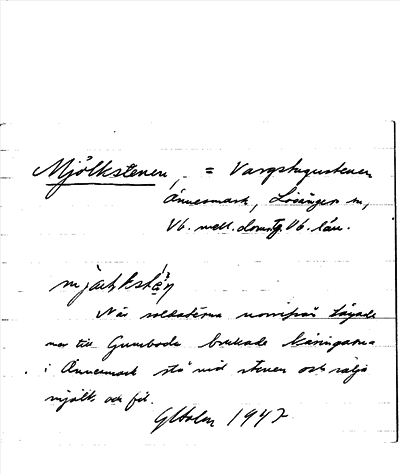 Mjölkstenen, = Vargstugustenen
Ånnesmark, Lövånger sn,
Vb. mell. doms. Vb. län.
När soldaterna norrifrån tågade
ner till Gumboda brukade käringarna
i Ånnesmark stå vid stenen och sälja
mjölk och fil.
1947